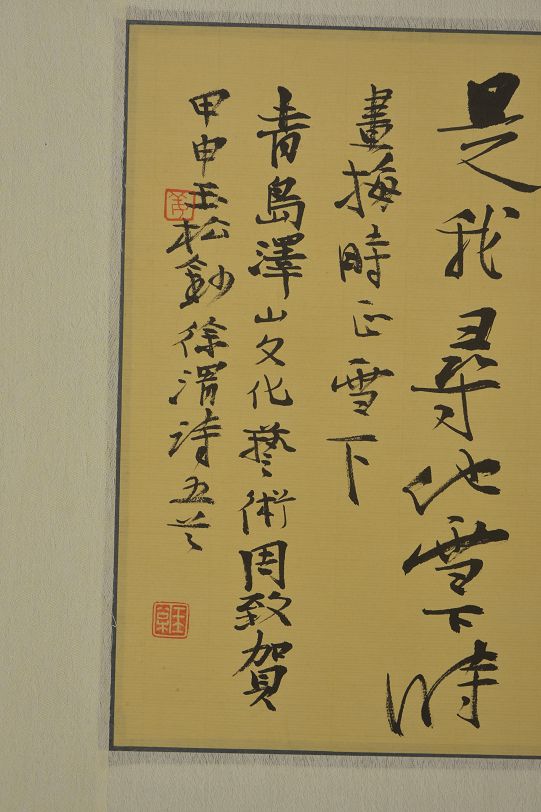 是我尋他雪下時
畫梅時正雪下
青島澤山文化藝術周致賀
甲申玉松鈔徐渭詩五首